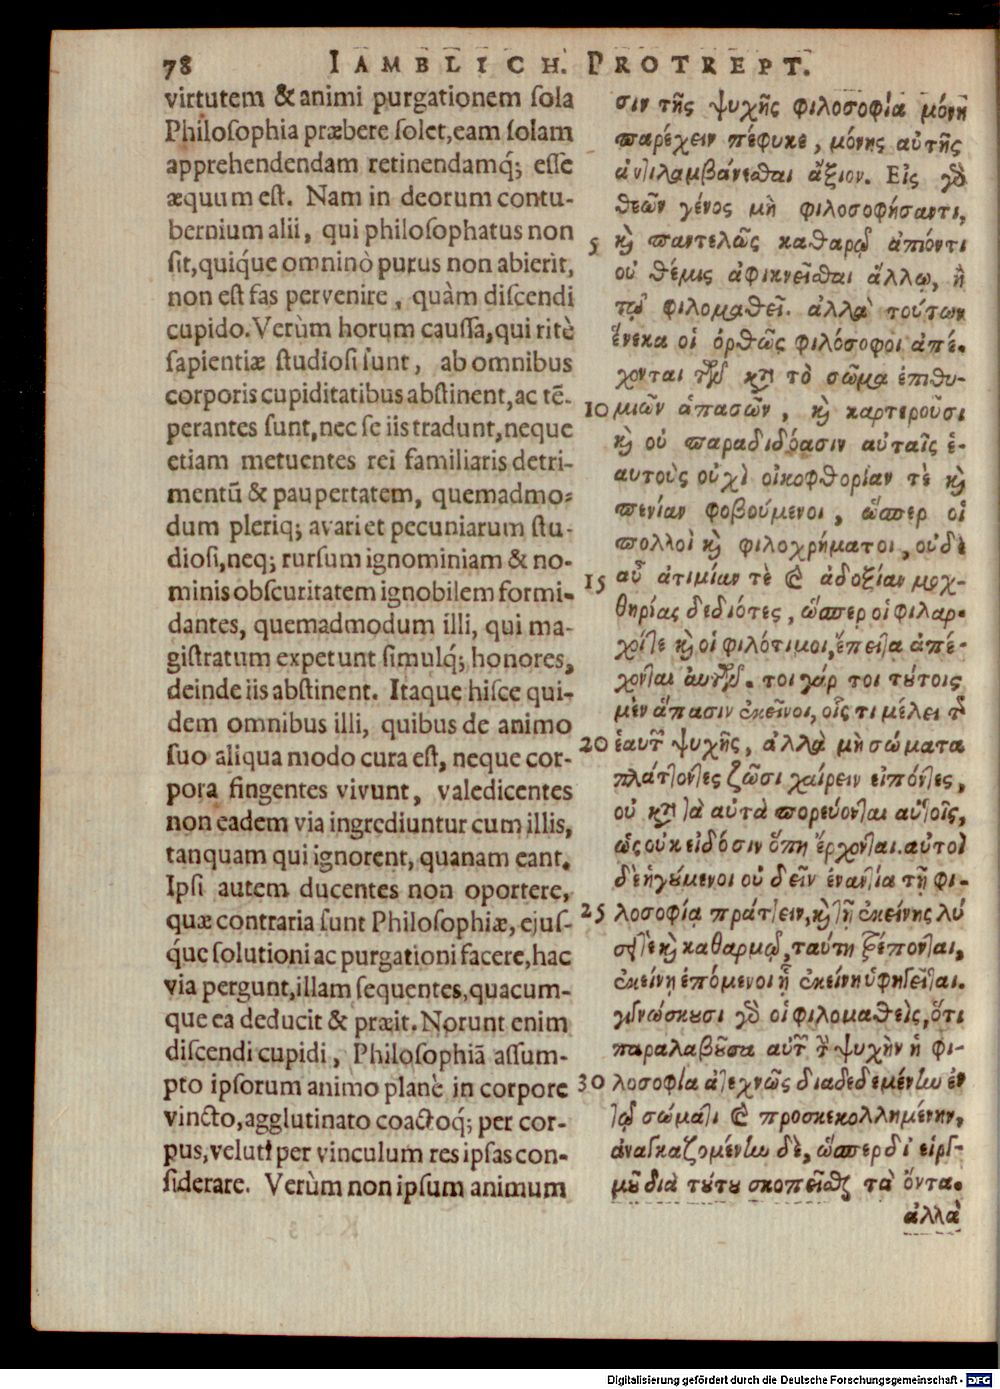 78 IAMBLICH. PROTREPT.
virtutem & animi purgationem sola
Philosophia præbere solet, eam solam
apprehendendam retinendamq́; esse
æquum est. Nam in deorum contu-
bernium alii, qui philosophatus non
sit, quíque omninò purus non abierit,
non est fas pervenire, quàm discendi
cupido. Verùm horum caussa, qui ritè
sapientiæ studiosi sunt, ab omnibus
corporis cupiditatibus abstinent, ac tē-
perantes sunt, nec se iis tradunt, neque
etiam metuentes rei familiaris detri-
mentū & paupertatem, quemadmo-
dum pleriq; avari et pecuniarum stu-
diosi, neq; rursum ignominiam & no-
minis obscuritatem ignobilem formi-
dantes, quemadmodum illi, qui ma-
gistratum expetunt simulq́; honores,
deinde iis abstinent. Itaque hisce qui-
dem omnibus illi, quibus de animo
suo aliqua modo cura est, neque cor-
pora fingentes vivunt, valedicentes
non eadem via ingrediuntur cum illis,
tanquam qui ignorent, quanam eant.
Ipsi autem ducentes non oportere,
quæ contraria sunt Philosophiæ, ejus-
q́ue solutioni ac purgationi facere, hac
via pergunt, illam sequentes, quacum-
que ea deducit & præit. Norunt enim
discendi cupidi, Philosophiā assum-
pto ipsorum animo planè in corpore
vincto, agglutinato coactoq́; per cor-
pus, veluti per vinculum res ipsas con-
siderare. Verùm non ipsum animum
σιν τῆς ψυχῆς φιλοσοφία μόνη
παρέχειν πέφυκε, μόνης αὐτῆς
ἀντιλαμβάνεσθαι ἄξιον. Εἰς γὸ
θεῶν γένος μὴ φιλοσοφήσαντι,
5 καὶ παντελῶς καθαρῷ ἀπιόντι
οὐ θέμις ἀφικνεῖσθαι ἄλλῳ, ἢ
τῷ φιλομαθεῖ. ἀλλὰ τούτων
ἕνεκα οἱ ὀρθῶς φιλόσοφοι ἀπέ-
χονται τῶν κατὰ τὸ σῶμα ἐπιθυ-
10 μιῶν ἁπασῶν, καὶ καρτεροῦσι
καὶ οὐ παραδιδόασιν αὐταῖς ἑ-
αυτοὺς οὐχὶ οἰκοφθορίαν τὲ καὶ
πενίαν φοβούμενοι, ὥσπερ οἱ
πολλοὶ καὶ φιλοχρήματοι, οὐδὲ
15 αὖ ἀτιμίαν τὲ καὶ ἀδοξίαν μοχ-
θηρίας δεδιότες, ὥσπερ οἱ φίλαρ-
χοίτε καὶ οἱ φιλότιμοι, ἔπειτα ἀπέ-
χονται αὐτῶν. τοι γάρ τοι τούτοις
μὲν ἅπασιν ἐκεῖνοι, οἷς τι μέλει τῆς
20 ἑαυτῶν ψυχῆς, ἀλλὰ μὴ σώματα
πλάττοντες ζῶσι χαίρειν εἰπόντες,
οὐ κατὰ ταὐτὰ πορεύονται αὐτοῖς,
ὡς οὐκ εἰδόσιν ὅπη ἔρχονται. αὐτοὶ
δὲ ἡγούμενοι οὐ δεῖν ἐναντία τῇ φι-
25 λοσοφίᾳ πράττειν, καὶ τῇ ἐκείνης λύ
σει τὲ καὶ καθαρμῷ, ταύτῃ τρέπονται,
ἐκείνῃ ἑπόμενοι ᾗ ἐκείνη ὑφηγεῖται.
γιγνώσκουσι γὸ οἱ φιλομαθεῖς, ὅτι
παραλαβοῦσα αὐτῶν τὴν ψυχὴν ἡ φι-
30 λοσοφία ἀτεχνῶς διαδεδεμένην ἐν
τῷ σώματι καὶ προσκεκολλημένην,
ἀναγκαζομένην δὲ, ὥσπερ δι' εἱργ-
μοῦ διὰ τούτου σκοπεῖσθαι τὰ ὄντα.
ἀλλὰ
Digitalisierung gefördert durch die Deutsche Forschungsgemeinschaft - DFG